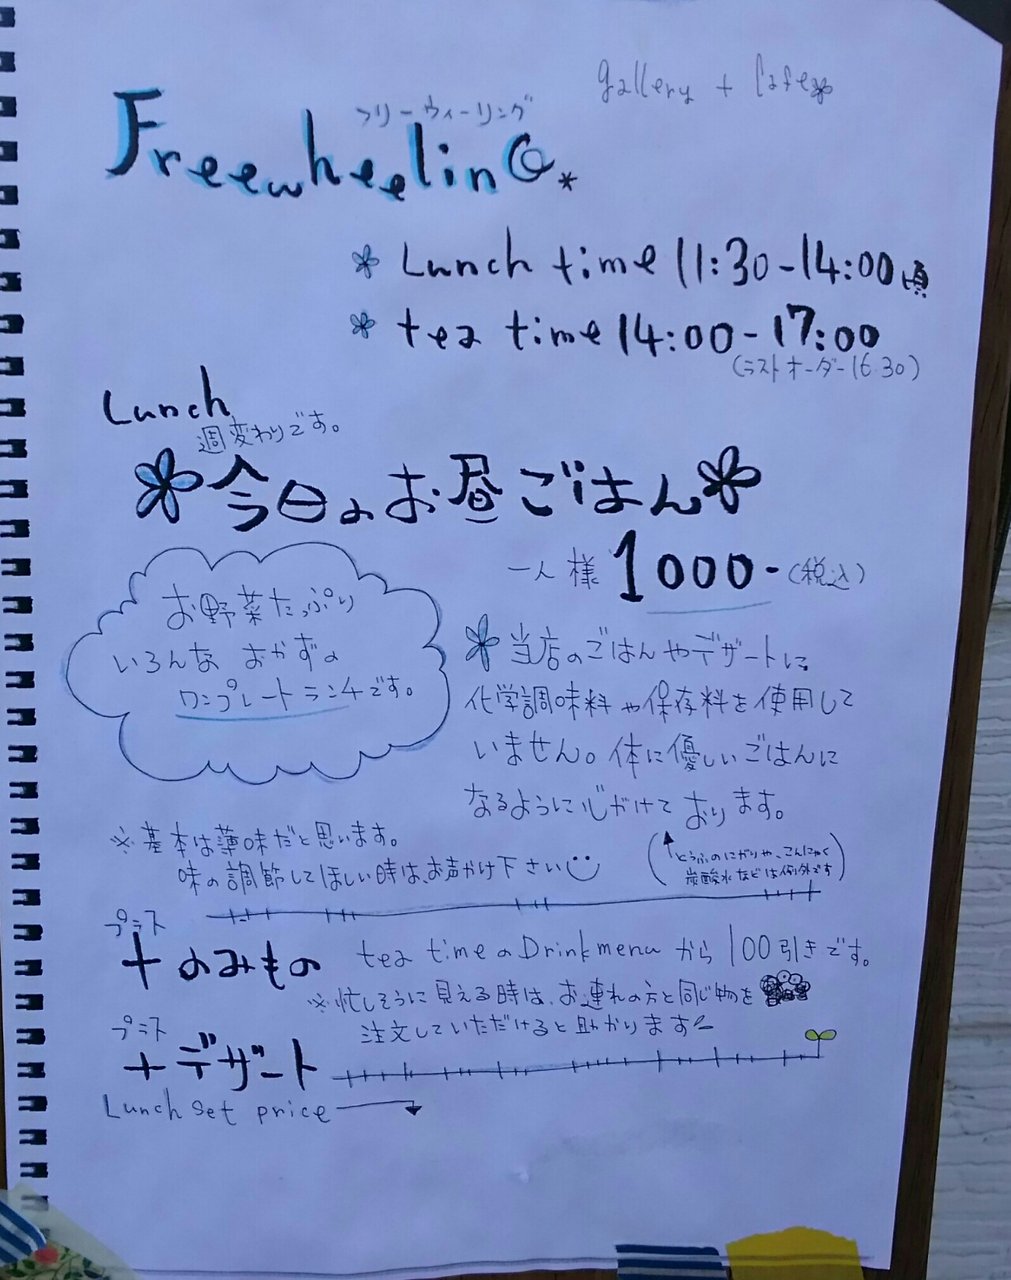 gallery + Cafe
フリーウィーリング
FreewheelinG*
Lunch time 11:30-14:00頃
tea time 14:00-17:00
(ラストオーダー16:30)
Lunch
週変わりです。
今日のお昼ごはん
一人様 1000-(税込)
お野菜たっぷり
いろんな おかずの
ワンプレートランチです。
当店のごはんやデザートに、
化学調味料や保存料を使用して
いません。体に優しいごはんに
なるように心がけて おります。
(とうふのにがりや、こんにゃく
炭酸水などは例外です)
※基本は薄味だと思います。
味の調節してほしい時は、お声かけ下さい
プラス
+ のみもの tea timeのDrink menuから100引きです。
※忙しそうに見える時は、お連れの方と同じ物を
注文していただけると助かります
プラス
+デザート
Lunch set price